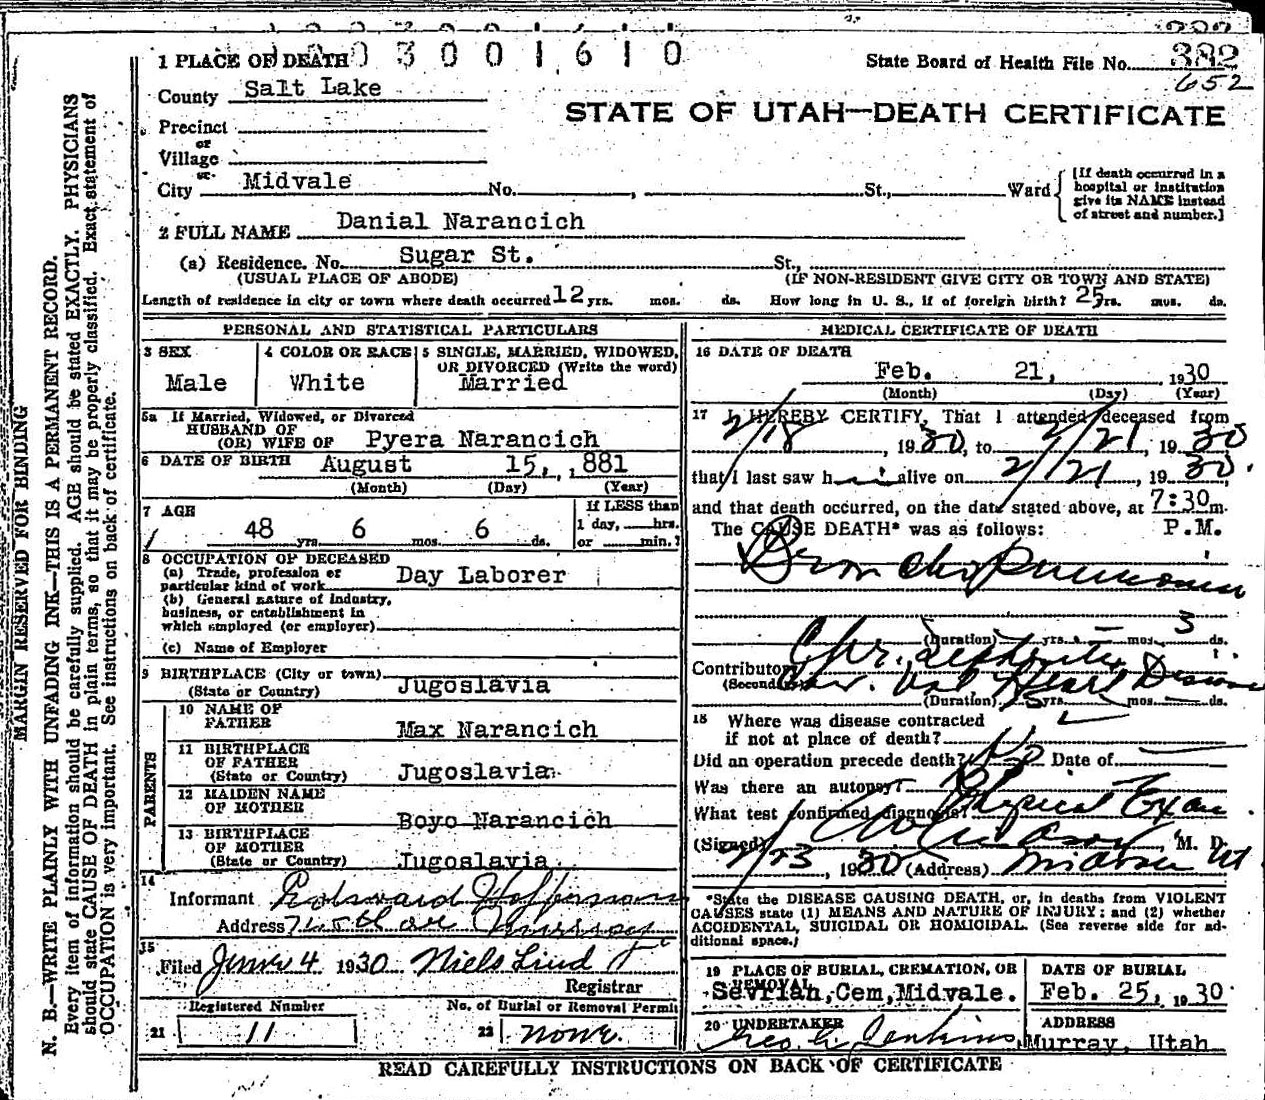 1 PLACE OF DEATH 3001610
State Board of Health File No. 382
652
County Salt Lake
STATE OF UTAH—DEATH CERTIFICATE
Precinct
or
Village
or
City Midvale No. , St., Ward
[If death occurred in a hospital or institution give its NAME instead of street and number.]
2 FULL NAME Danial Narancich
(a) Residence. No. Sugar St. St.,
(USUAL PLACE OF ABODE) (IF NON-RESIDENT GIVE CITY OR TOWN AND STATE)
Length of residence in city or town where death occurred 12 yrs. mos. ds. How long in U. S., if of foreign birth? 25 yrs. mos. ds.
PERSONAL AND STATISTICAL PARTICULARS
3 SEX
Male
4 COLOR OR RACE
White
5 SINGLE, MARRIED, WIDOWED,
OR DIVORCED (Write the word)
Married
5a If Married, Widowed, or Divorced
HUSBAND OF
(OR) WIFE OF Pyera Narancich
6 DATE OF BIRTH August 15, ,881
(Month) (Day) (Year)
7 AGE
48 yrs. 6 mos. 6 ds.
If LESS than
1 day, hrs.
or min.?
8 OCCUPATION OF DECEASED
(a) Trade, profession or
particular kind of work Day Laborer
(b) General nature of industry,
business, or establishment in
which employed (or employer)
(c) Name of Employer
9 BIRTHPLACE (City or town)
(State or Country) Jugoslavia
PARENTS
10 NAME OF
FATHER Max Narancich
11 BIRTHPLACE
OF FATHER
(State or Country) Jugoslavia
12 MAIDEN NAME
OF MOTHER Boyo Narancich
13 BIRTHPLACE
OF MOTHER
(State or Country) Jugoslavia
14
Informant
Address
15
Filed 4 1930 Niels Lind
Registrar
Registered Number No. of Burial or Removal Permit
21 11 22 none.
MEDICAL CERTIFICATE OF DEATH
16 DATE OF DEATH
Feb. 21, , 1930
(Month) (Day) (Year)
17 I HEREBY CERTIFY, That I attended deceased from
2/18, 1930, to 2/21, 1930
that I last saw him alive on 2/21, 1930.
and that death occurred, on the date stated above, at 7:30 m.
The CAUSE DEATH* was as follows: P.M.
Broncho Pneumonia
(Duration) yrs. — mos. 3 ds.
Contributory Chr.
(Secondary) Chr. Val Heart Disease
(Duration) yrs. mos. — ds.
18 Where was disease contracted
if not at place of death?
Did an operation precede death? No Date of
Was there an autopsy? No
What test confirmed diagnosis? Physical Exam
(Signed) , M. D.
2/23, 1930 (Address) Midvale Ut
*State the DISEASE CAUSING DEATH, or, in deaths from VIOLENT
CAUSES state (1) MEANS AND NATURE OF INJURY; and (2) whether
ACCIDENTAL, SUICIDAL OR HOMICIDAL. (See reverse side for ad-
ditional space.)
19 PLACE OF BURIAL, CREMATION, OR
REMOVAL
Sevrian, Cem, Midvale.
DATE OF BURIAL
Feb. 25, , 1930
20 UNDERTAKER
Geo Jenkins
ADDRESS
Murray, Utah
READ CAREFULLY INSTRUCTIONS ON BACK OF CERTIFICATE
MARGIN RESERVED FOR BINDING
N. B.—WRITE PLAINLY WITH UNFADING INK—THIS IS A PERMANENT RECORD.
Every item of information should be carefully supplied. AGE should be stated EXACTLY. PHYSICIANS
should state CAUSE OF DEATH in plain terms, so that it may be properly classified. Exact statement of
OCCUPATION is very important. See instructions on back of certificate.